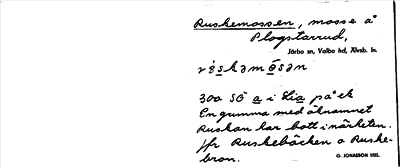 Ruskemossen, mosse å
Plogstarrud,
Järbo sn, Valbo hd, Älvsb. ln.
300 SÖ a i Lia på ek
En gumma med öknamnet
Ruskan har bott i närheten.
Jfr Ruskebäcken o Ruske-
bron.
O. JONASSON 1952.